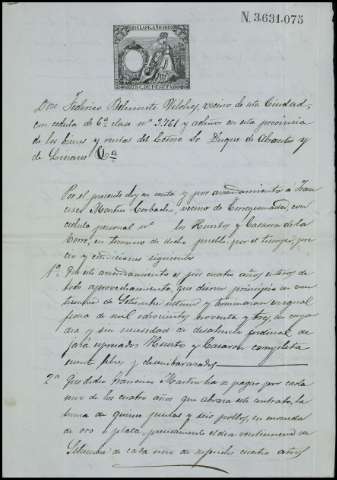 N. 3.631.075
Don Federico Belmonte Vilches, vecino de esta Ciudad,
con cedula de 6ª clase nº 3.761 y
de los bienes y rentas del Exmo Sr. Duque de Abrantes y
de Linares
Por el presente doy en renta y por arrendamiento a Fran-
cisco Martin vecino de con
cedula personal nº la Huerta y Caseria de la
Torre, en termino de dicho pueblo, por el tiempo, pre-
cio y condiciones siguientes
1ª. Que este arrendamiento es por cuatro años enteros de
todo aprovechamiento, que dieron principio en vein-
tiuno de Setiembre ultimo y terminaran en igual
fecha de mil ochocientos noventa y tres, en cuyo
dia y sin necesidad de desahucio judicial de-
jará expresados Huerta y Caseron completa-
mente libres y desembarazados
2ª Que dicho Francisco Martin ha de pagar por cada
uno de los cuatro años que abraza este contrato, la
suma de quince y seis pollos, en moneda
de oro o plata, precisamente el dia veintiuno de
Setiembre de cada uno de repetidos cuatro años